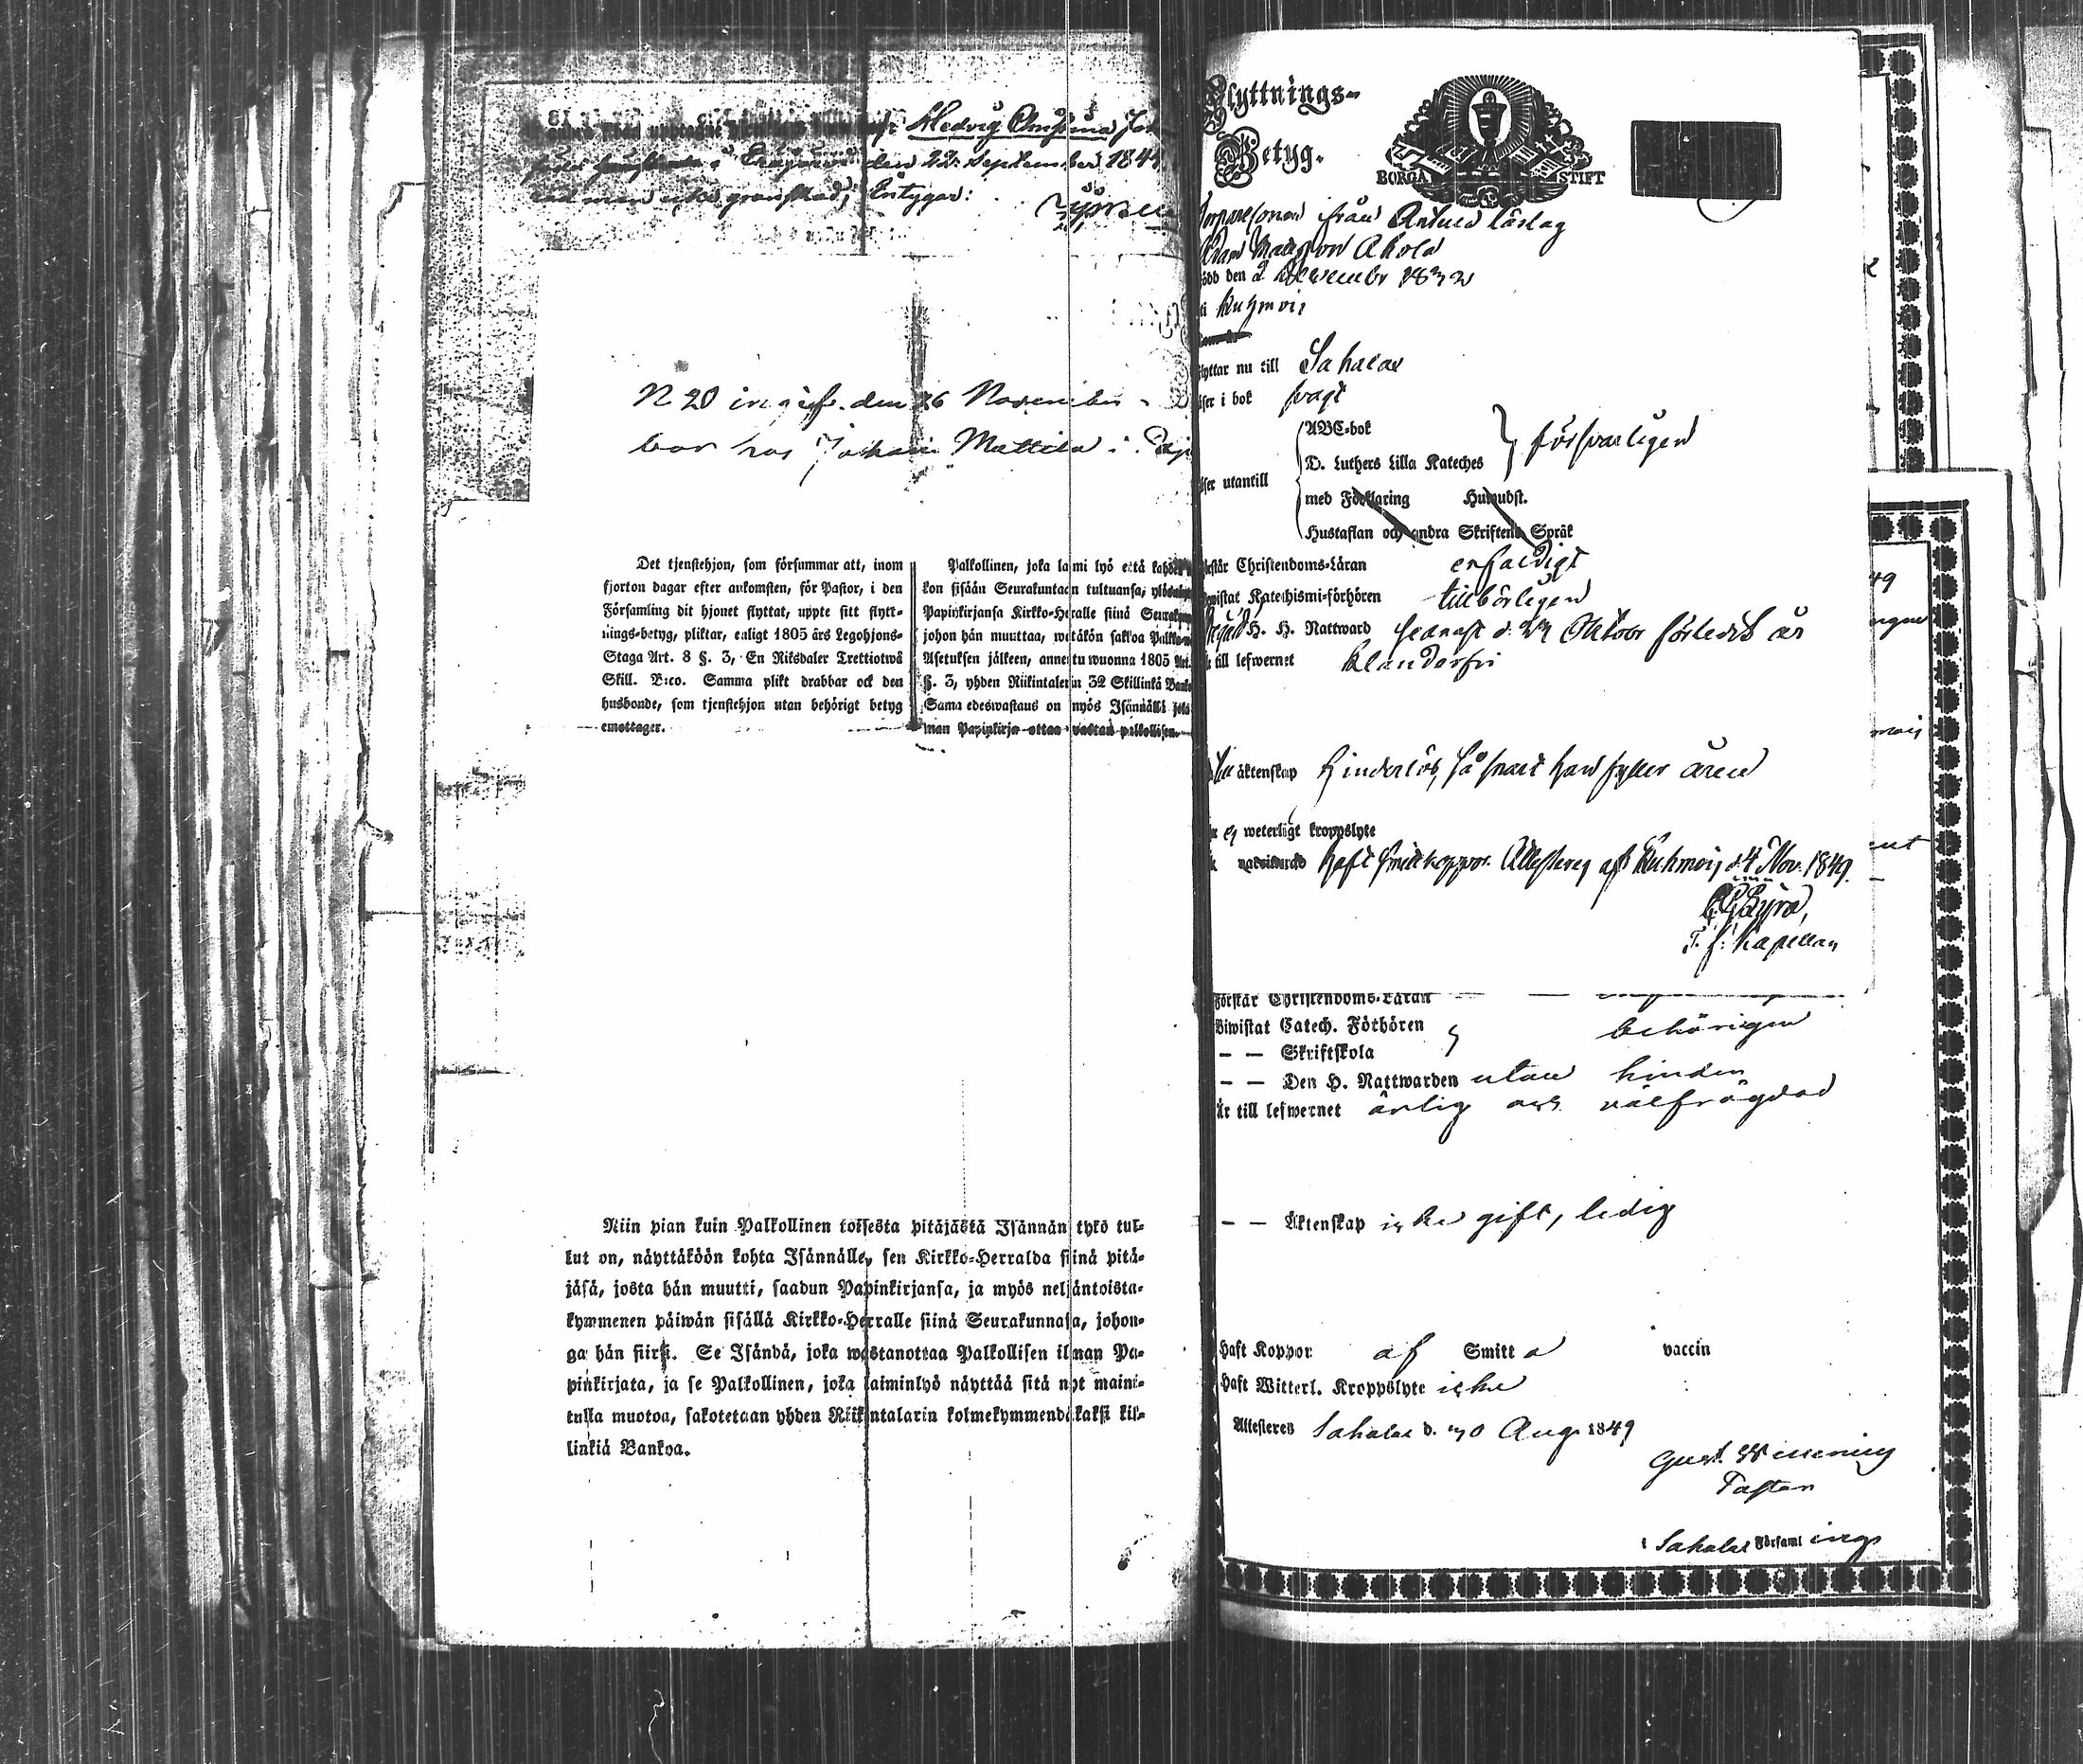 Hedvig
den 22 September 1849
Intygar:
N 20 ingif. den 26 November
bor hos Johan Mattila i
Det tjenstehjon, som försummar att, inom
fjorton dagar efter ankomsten, för Pastor, i den
Församling dit hjonet flyttat, uppte sitt flytt-
nings-betyg, pliktar, enligt 1805 års Legohjons-
Staga Art. 8 §. 3, En Riksdaler Trettiotwå
Skill. B:co. Samma plikt drabbar ock den
husbonde, som tjenstehjon utan behörigt betyg
emottager.
Palkollinen, joka laimi lyö että kahden
kon sisään Seurakuntaan tultuansa, ylös
Papinkirjansa Kirkko-Herralle siinä Seurak
johon hän muuttaa, wetäkön sakkoa Palkka
Asetuksen jälkeen, annettu wuonna 1805 Art.
§. 3, yhden Riikintalerin 32 Skillinkiä Banko
Sama edeswastaus on myös Isännällä joka
man Papinkirja ottaa wastan palkollisen.
Niin pian kuin Palkollinen toisesta pitäjästä Isännän tykö tul-
lut on, näyttäköön kohta Isännälle, sen Kirkko-Herralda siinä pitä-
jäsä, josta hän muutti, saadun Papinkirjansa, ja myös neljäntoista-
kymmenen päiwän sisällä Kirkko-Herralle siinä Seurakunnasa, johon-
ga hän siirsi. Se Isändä, joka wastanottaa Palkollisen ilman Pa-
pinkirjata, ja se Palkollinen, joka laiminlyö näyttää sitä nyt maini-
tulla muotoa, sakotetaan yhden Riikintalarin kolmekymmendäkaksi kil-
linkiä Bankoa.
Flyttnings-
Betyg.
BORGÅ STIFT
från Arhula låslag
Adam Mattsson Ahola
född den 2 December 1832
i Kuhmois
flyttar nu till Sahalax
läser i bok svagt
ABC-bok
D. Luthers Lilla Kateches försvarligen
läser utantill
med Förklaring Huswubst.
Hustaflan och andra Skriftens Språk
förstår Christendoms-Läran enfaldigt
bewistat Katechismi-förhören tillbörligen
Begått H. H. Nattward senast d. 22 Oktobr förledit år
är till lefwernet klanderfri
till äktenskap hinderlös, så snart han fyller åren
weterligt kroppslyte
haft smittkoppor. Attesteras af Kuhmois d. 4 Nov. 1849.
T. f. Kapellan
Förstår Christendoms-Läran
Biwistat Catech. Förhören behörigen
— — Skriftskola
— — Den H. Nattwarden utan hinder
Är till lefwernet ärlig och välfrägdad
— — Äktenskap icke gift, ledig
Haft Koppor af Smitta vaccin
Haft Witterl. Kroppslyte icke
Attesteres Sahalax d. 30 Aug. 1849
Gust.
Pastor
i Sahalax Församlings